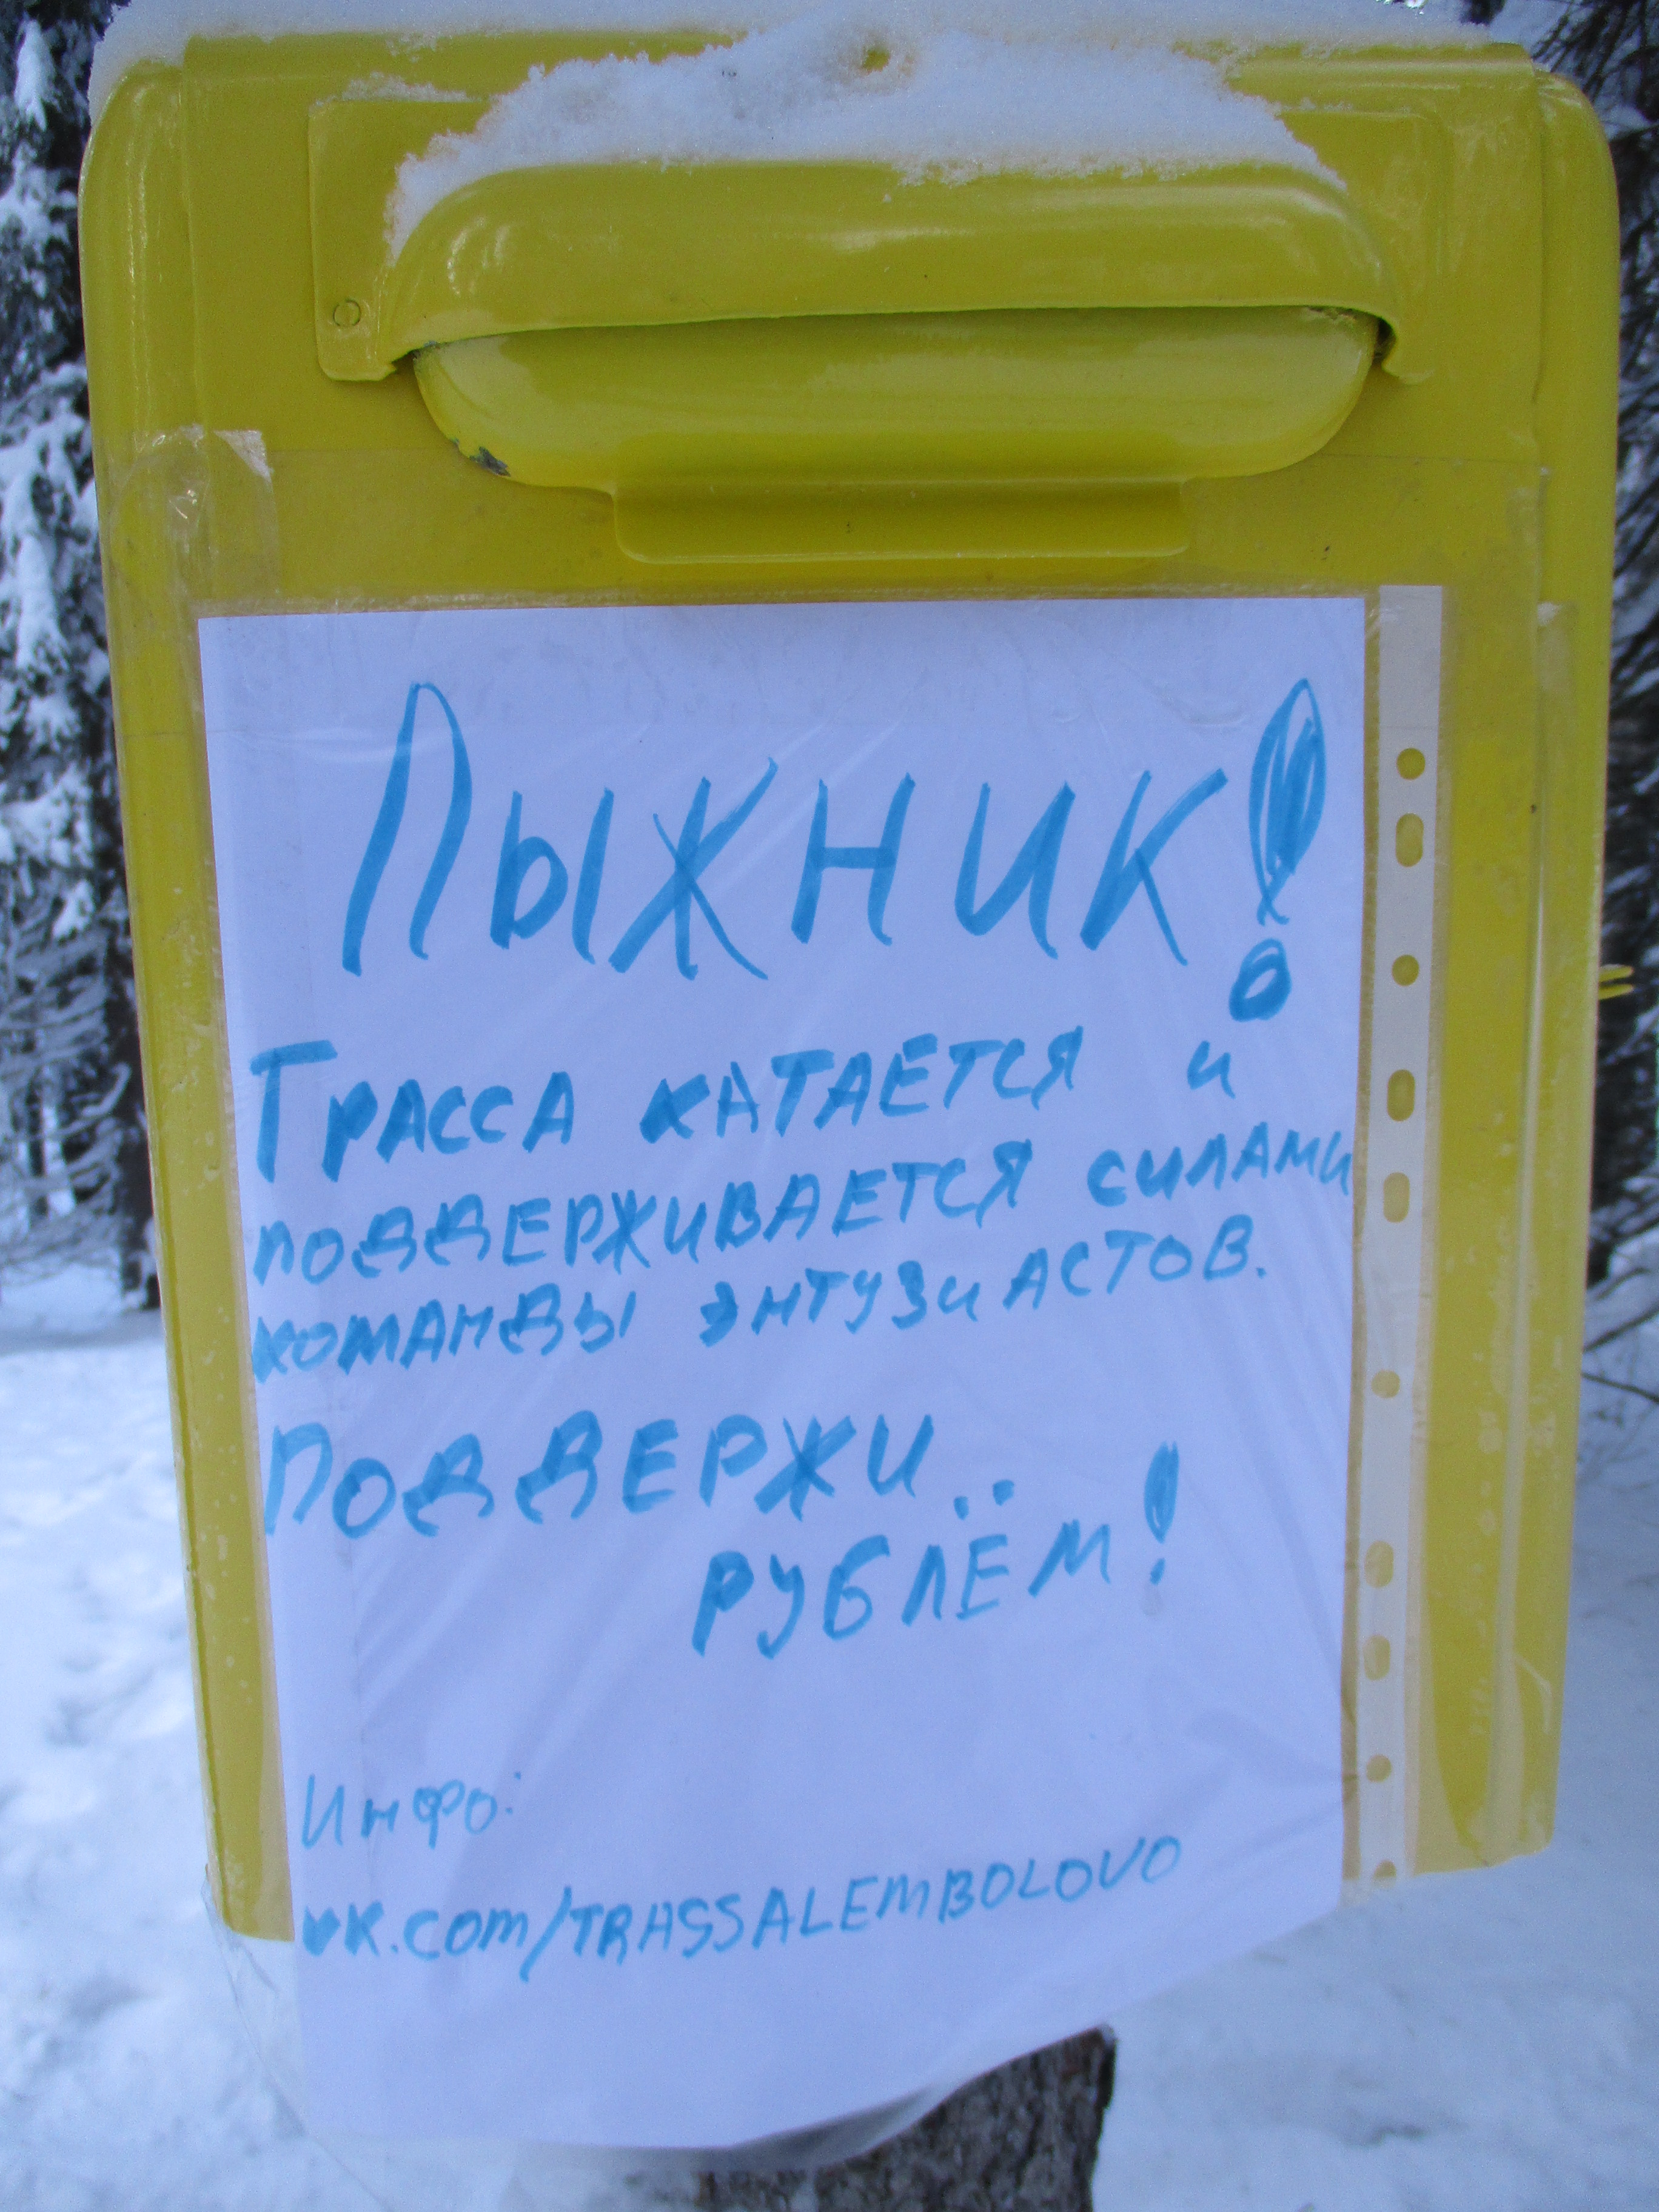 Лыжник!
Трасса катается и
поддерживается силами
команды энтузиастов.
Поддержи..
рублём!
Инфо:
vk.com/TRASSALEMBOLOVO